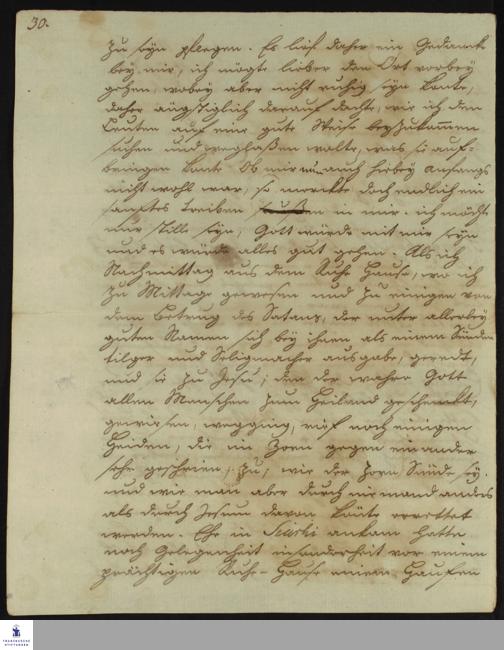 30.
zu seyn pflegen. Es lief daher ein Gedanck
bey mir, ich mögte lieber den Ort vorbey
gehen, wobey aber nicht ruhig seyn konte,
daher ängstiglich darauf dachte, wie ich den
Leuten auf eine gute Weise beyzukommen
suchen und weglaßen wolte, was sie auf-
bringen konte. Ob mir nun auch hiebey anfangs
nicht wohl war, so merckte doch endlich ein
sanftes treiben in mir: ich möchte
nur stille seyn, Gott würde mit mir seyn
und es würde alles gut gehen. Als ich
Nachmittag aus dem Ruhe Hause, wo ich
zu Mittage gewesen und zu einigen von
dem Betrug des Satans, der unter allerley
guten Namen sich bey ihnen als einen Sünden
tilger und Seligmacher ausgabe, geredt,
und sie zu Jesu, den der wahre Gott
allen Menschen zum Heiland geschenckt,
gewiesen, wegging, rief noch einigen
Heiden, die im Zorn gegen einander
sehr geschrien, zu, wie der Zorn Sünde sey.
und wie man aber durch niemand anders
als durch Jesum davon könte errettet
werden. Ehe in ankam hatte
noch Gelegenheit insonderheit vor einem
prächtigen Ruhe-Hause einem Haufen
FRANCKESCHE
STIFTUNGEN